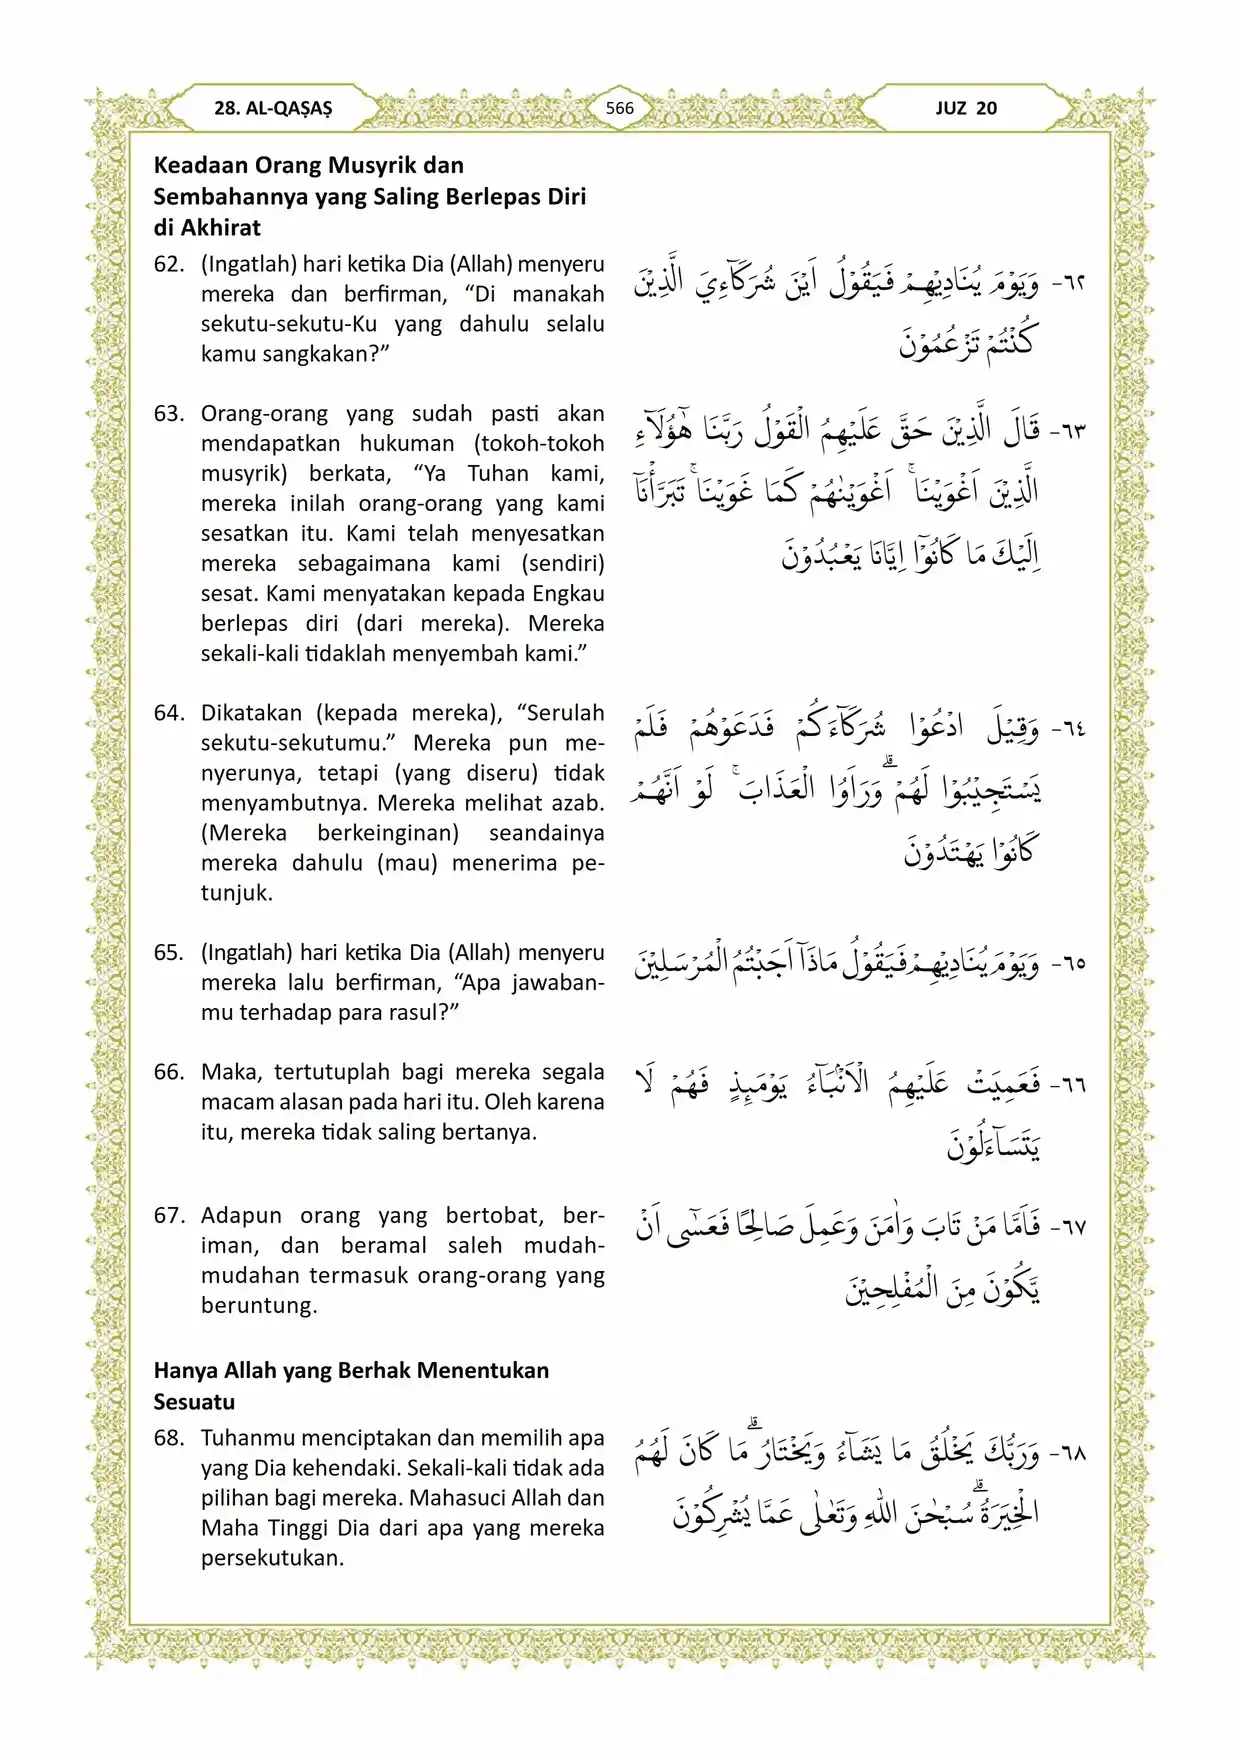 28. AL-QAṢAṢ
566
JUZ 20
Keadaan Orang Musyrik dan
Sembahannya yang Saling Berlepas Diri
di Akhirat
62. (Ingatlah) hari ketika Dia (Allah) menyeru
mereka dan berfirman, “Di manakah
sekutu-sekutu-Ku yang dahulu selalu
kamu sangkakan?”
٦٢- وَيَوْمَ يُنَادِيْهِمْ فَيَقُوْلُ اَيْنَ شُرَكَاۤءِيَ الَّذِيْنَ
كُنْتُمْ تَزْعُمُوْنَ
63. Orang-orang yang sudah pasti akan
mendapatkan hukuman (tokoh-tokoh
musyrik) berkata, “Ya Tuhan kami,
mereka inilah orang-orang yang kami
sesatkan itu. Kami telah menyesatkan
mereka sebagaimana kami (sendiri)
sesat. Kami menyatakan kepada Engkau
berlepas diri (dari mereka). Mereka
sekali-kali tidaklah menyembah kami.”
٦٣- قَالَ الَّذِيْنَ حَقَّ عَلَيْهِمُ الْقَوْلُ رَبَّنَا هٰٓؤُلَاۤءِ
الَّذِيْنَ اَغْوَيْنَاۚ اَغْوَيْنٰهُمْ كَمَا غَوَيْنَاۚ تَبَرَّأْنَآ
اِلَيْكَ مَا كَانُوْٓا اِيَّانَا يَعْبُدُوْنَ
64. Dikatakan (kepada mereka), “Serulah
sekutu-sekutumu.” Mereka pun me-
nyerunya, tetapi (yang diseru) tidak
menyambutnya. Mereka melihat azab.
(Mereka berkeinginan) seandainya
mereka dahulu (mau) menerima pe-
tunjuk.
٦٤- وَقِيْلَ ادْعُوْا شُرَكَاۤءَكُمْ فَدَعَوْهُمْ فَلَمْ
يَسْتَجِيْبُوْا لَهُمْ ۗوَرَاَوُا الْعَذَابَۚ لَوْ اَنَّهُمْ
كَانُوْا يَهْتَدُوْنَ
65. (Ingatlah) hari ketika Dia (Allah) menyeru
mereka lalu berfirman, “Apa jawaban-
mu terhadap para rasul?”
٦٥- وَيَوْمَ يُنَادِيْهِمْ فَيَقُوْلُ مَاذَآ اَجَبْتُمُ الْمُرْسَلِيْنَ
66. Maka, tertutuplah bagi mereka segala
macam alasan pada hari itu. Oleh karena
itu, mereka tidak saling bertanya.
٦٦- فَعَمِيَتْ عَلَيْهِمُ الْاَنْۢبَاۤءُ يَوْمَىِٕذٍ فَهُمْ لَا
يَتَسَاۤءَلُوْنَ
67. Adapun orang yang bertobat, ber-
iman, dan beramal saleh mudah-
mudahan termasuk orang-orang yang
beruntung.
٦٧- فَاَمَّا مَنْ تَابَ وَاٰمَنَ وَعَمِلَ صَالِحًا فَعَسٰٓى اَنْ
يَّكُوْنَ مِنَ الْمُفْلِحِيْنَ
Hanya Allah yang Berhak Menentukan
Sesuatu
68. Tuhanmu menciptakan dan memilih apa
yang Dia kehendaki. Sekali-kali tidak ada
pilihan bagi mereka. Mahasuci Allah dan
Maha Tinggi Dia dari apa yang mereka
persekutukan.
٦٨- وَرَبُّكَ يَخْلُقُ مَا يَشَاۤءُ وَيَخْتَارُ ۗمَا كَانَ لَهُمُ
الْخِيَرَةُ ۗسُبْحٰنَ اللّٰهِ وَتَعٰلٰى عَمَّا يُشْرِكُوْنَ